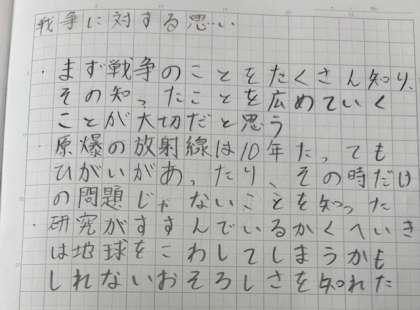 戦争に対する思い
・まず戦争のことをたくさん知り、
その知ったことを広めていく
ことが大切だと思う
・原爆の放射線は10年たっても
ひがいがあったり、その時だけ
の問題じゃないことを知った
・研究がすすんでいるかくへいき
は地球をこわしてしまうかも
しれないおそろしさを知れた